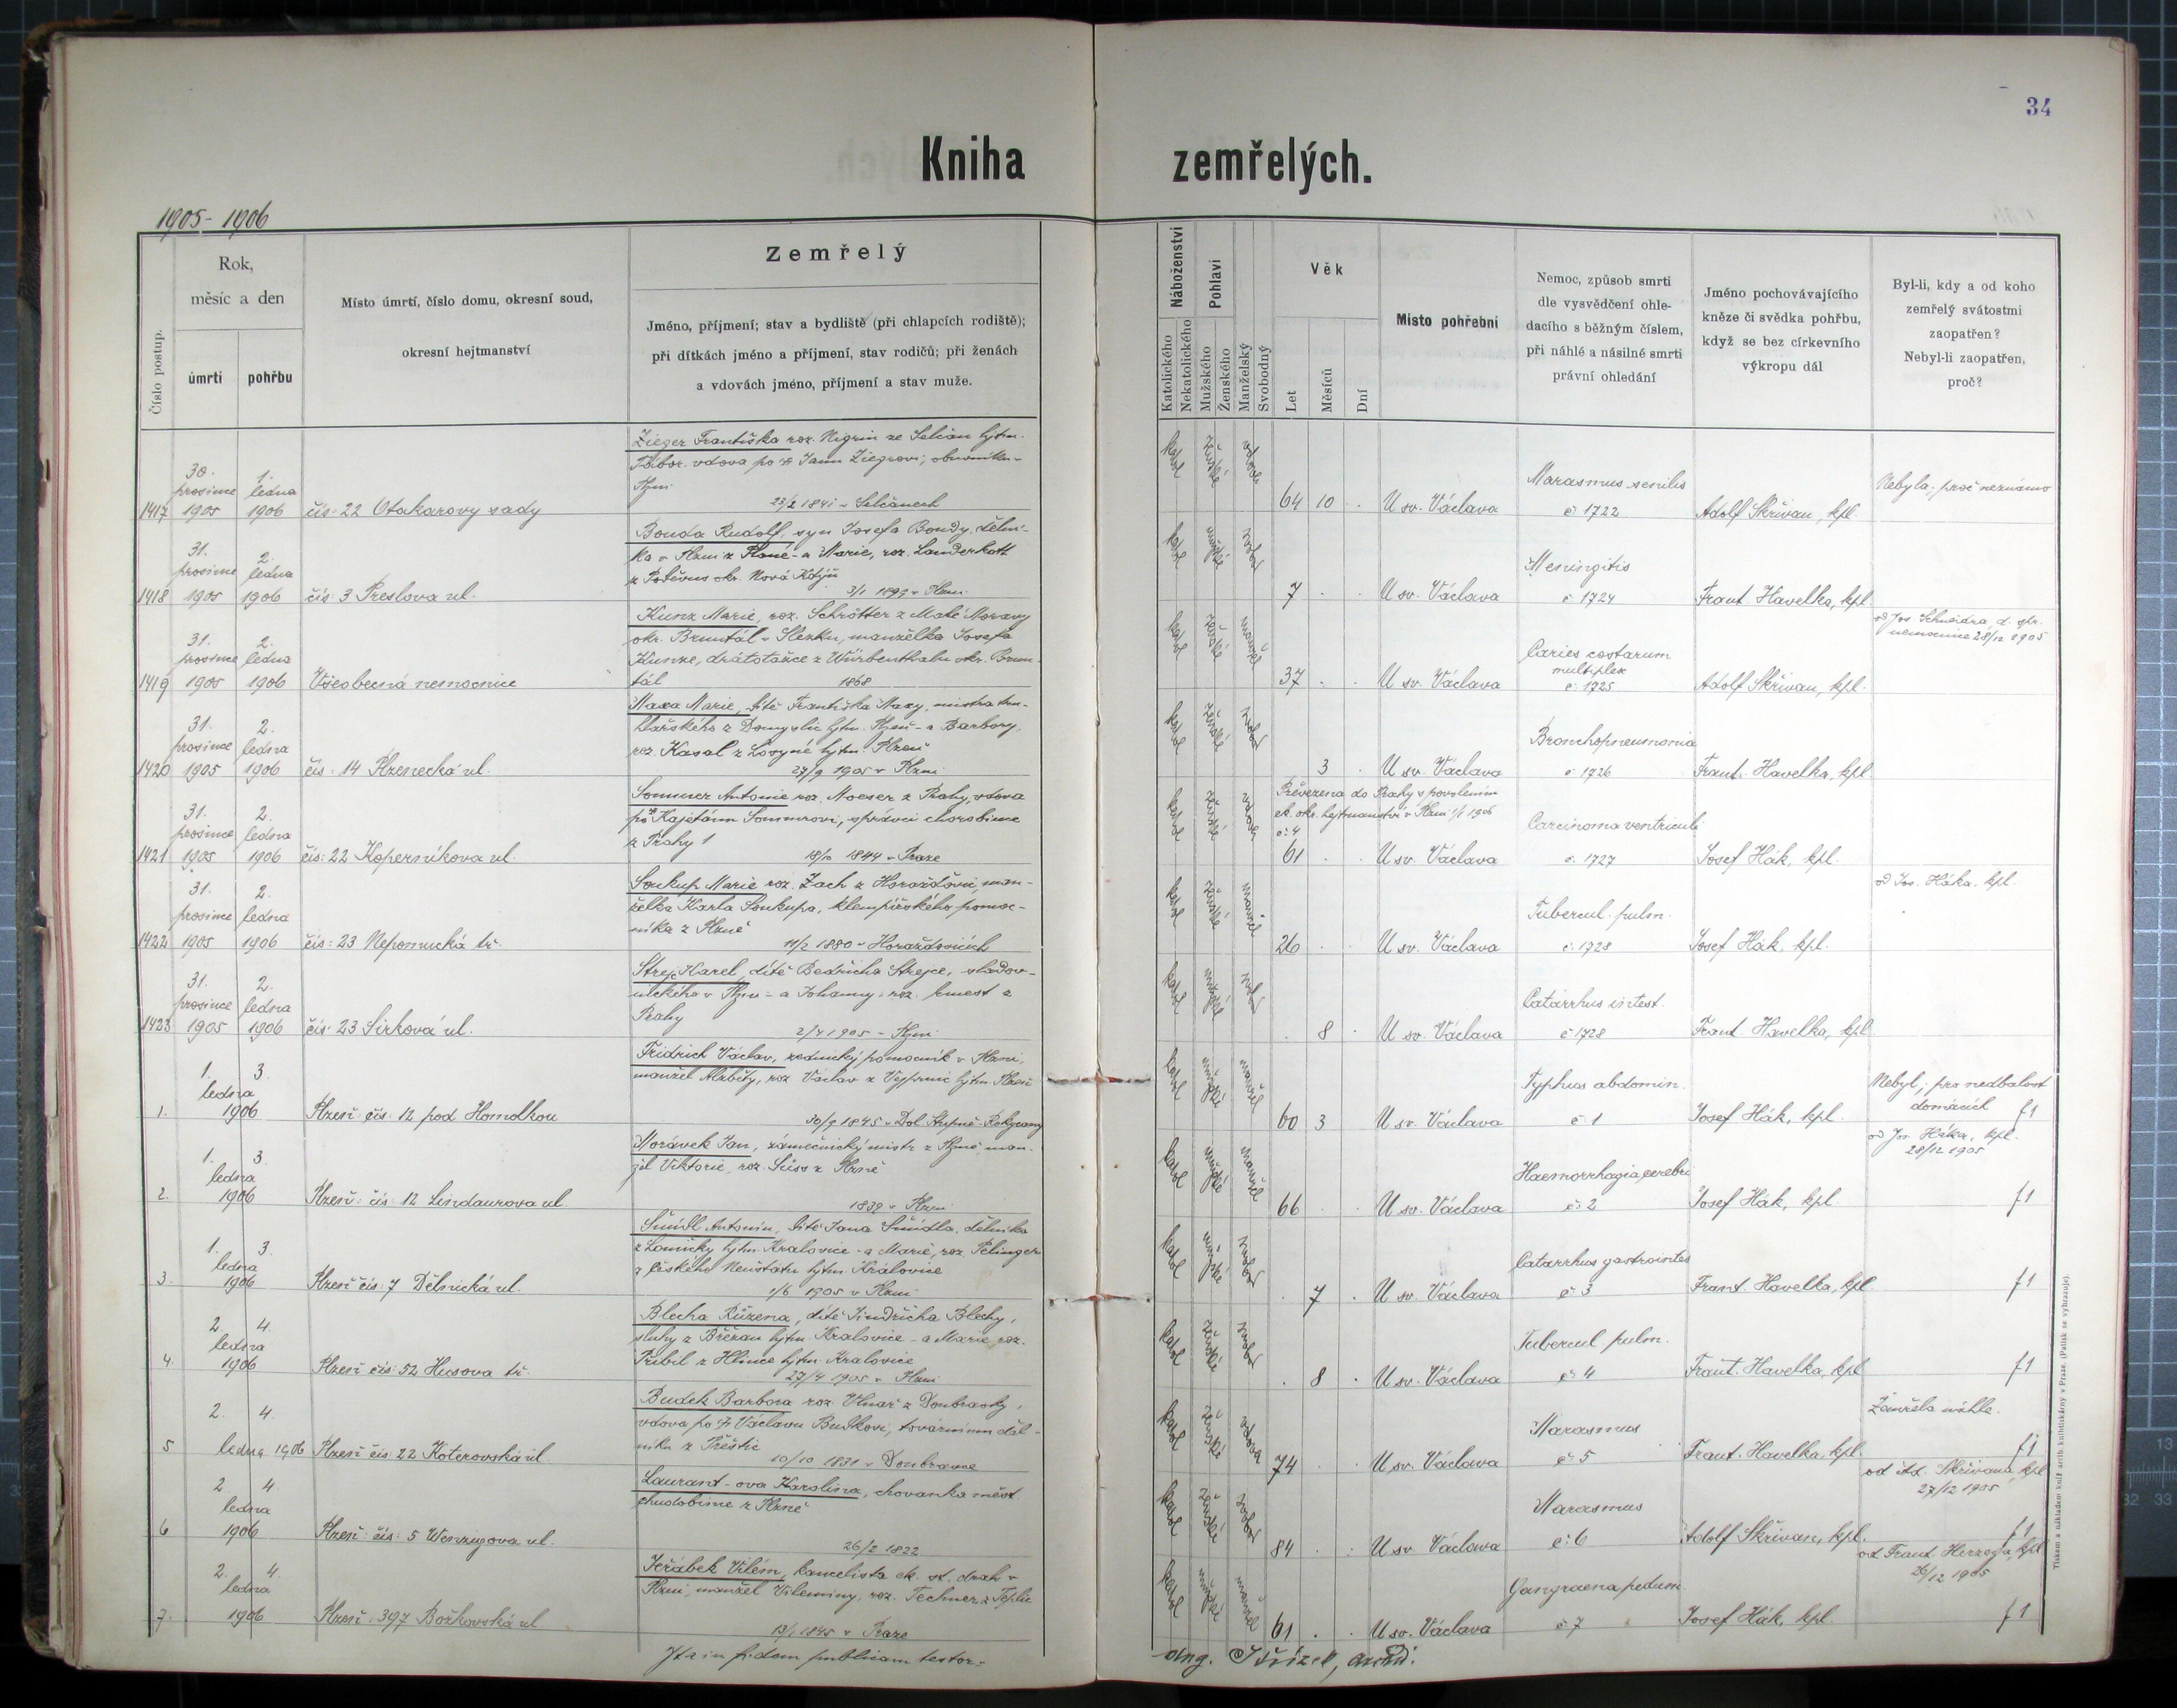 34
Kniha zemřelých.
1905-1906
Číslo postup.
Rok,
měsíc a den
úmrtí
pohřbu
Místo úmrtí, číslo domu, okresní soud,
okresní hejtmanství
Zemřelý
Jméno, příjmení; stav a bydliště (při chlapcích rodiště);
při dítkách jméno a příjmení, stav rodičů; při ženách
a vdovách jméno, příjmení a stav muže.
Náboženství
Katolického
Nekatolického
Pohlaví
Mužského
Ženského
Manželský
Svobodný
Věk
Let
Měsíců
Dní
Místo pohřební
Nemoc, způsob smrti
dle vysvědčení ohle-
dacího s běžným číslem,
při náhlé a násilné smrti
právní ohledání
Jméno pochovávajícího
kněze či svědka pohřbu,
když se bez církevního
výkropu dál
Byl-li, kdy a od koho
zemřelý svátostmi
zaopatřen?
Nebyl-li zaopatřen,
proč?
1417
30. prosince 1905
1. ledna 1906
čís: 22 Otakarovy sady
Zieger Františka roz. Nigrin ze Selčan hjtm.
Tábor. vdova po Janu Ziegrovi, obuvníku
Plzni
23/2 1841 v Selčanech
64 10
U sv. Václava
Marasmus senilis
č 1722
Adolf Skřivan, kpl
Nebyla, proč neznámo
1418
31. prosince 1905
2. ledna 1906
čís: 3 Preslova ul.
Bouda Rudolf, syn Josefa Boudy, dělní-
ka v Plzni z Plané - a Marie, roz.
okr. Nová Kdýň
v Plzni
7
U sv. Václava
Meningitis
č 1724
Frant Havelka, kpl
1419
31. prosince 1905
2. ledna 1906
Všeobecná nemocnice
Kunz Marie, roz. Schrötter z Malé Moravy
okr. Bruntál v Slezku, manželka Josefa
Kunze, drátotažce z Würbenthalu okr. Brun-
tál
1868
37
U sv. Václava
Caries costarum
multiplex
č. 1725
Adolf Skřivan, kpl.
od Jos Schneidra, d. spr.
nemocnice 28/12 1905
1420
31. prosince 1905
2. ledna 1906
čís: 14 Plzenecká ul.
Maxa Marie, dítě Františka Maxy, mistra tru-
hlářského z Domyslic hjtm. Plzeň - a Barbory,
roz. Kasal z Losyné hjtm. Plzeň
27/9 1905 v Plzni
3
U sv. Václava
Bronchopneumonia
č 1726
Frant. Havelka, kpl
1421
31. prosince 1905
2. ledna 1906
čís: 22 Koperníkova ul.
Sommer Antonie roz. Moeser z Prahy, vdova
po Kajetánu Sommrovi, správci chorobince
z Prahy 1
18/10 1844 v Praze
Převezena do Prahy s povolením
ck. okr. hejtmanství v Plzni 1/1 1906
č: 4
61
U sv. Václava
Carcinoma ventriculi
č. 1727
Josef Hák, kpl.
1422
31. prosince 1905
2. ledna 1906
čís: 23 Nepomucká tř.
Soukup Marie roz. Zach z Horažďovic, man-
želka Karla Soukupa, klempířského pomoc-
níka z Plzně
11/2 1880 v Horažďovicích
26
U sv. Václava
Tubercul. pulm.
č. 1728
Josef Hák, kpl.
od Jos. Háka, kpl.
1423
31. prosince 1905
2. ledna 1906
čís: 23 Sirková ul.
Strejc Karel, dítě Bedřicha Strejce, sladov-
nického v Plzni - a Johanny, roz. Ernest z
Prahy
2/4 1905 v Plzni
8
U sv. Václava
Catarrhus intest.
č 1728
Frant Havelka, kpl
1.
1. 3.
ledna
1906
Plzeň čís: 12 pod Homolkou
Fridrich Václav, zednický pomocník v Plzni,
manžel Alžběty, roz. Václav z Vejprnic hjtm. Plzeň
30/9 1845 v Dol. Stupně - Rokycany
60 3
U sv. Václava
Typhus abdomin.
č 1
Josef Hák, kpl.
Nebyl, pro nedbalost
domácích f1
2.
1. 3.
ledna
1906
Plzeň: čís: 12 Lindaurova ul.
Morávek Jan, zámečnický mistr z Plzně man-
žel Viktorie, roz. Süss z Plzně
1839 v Plzni
66
U sv. Václava
Haemorrhagia cerebri
č: 2
Josef Hák, kpl.
od Jos. Háka, kpl.
28/12 1905
f1
3.
1. 3.
ledna
1906
Plzeň čís: 7 Dělnická ul.
Šmídl Antonín, dítě Jana Šmídla, dělníka
z Lomičky hjtm. Kralovice - a Marie, roz. Pelinger
z českého Neustatu hjtm. Kralovice
1/6 1905 v Plzni
7
U sv. Václava
Catarrhus gastrointes
č 3
Frant. Havelka, kpl
f1
4.
2. 4.
ledna
1906
Plzeň čís: 52 Husova tř.
Blecha Růžena, dítě Jindřicha Blechy,
sluhy z Břežan hjtm. Kralovice - a Marie, roz.
Přibil z Hlince hjtm. Kralovice
27/4 1905 v Plzni
8
U sv. Václava
Tubercul pulm.
č 4
Frant. Havelka, kpl
f1
5
2. 4.
ledna 1906
Plzeň čís 22 Koterovská ul
Budek Barbora roz. Vlnař z Doubravky,
vdova po Václavu Budkovi, továrním děl-
níku z Přeštic
10/10 1831 v Doubravce
74
U sv. Václava
Marasmus
č 5
Frant. Havelka, kpl.
Zemřela náhle.
f1
6
2 4
ledna
1906
Plzeň: čís: 5 Wenzigova ul.
Laurant-ova Karolina, chovanka měst.
chudobince z Plzně
26/2 1822
84
U sv Václava
Marasmus
č: 6
Adolf Skřivan, kpl.
od Ad. Skřivana, kpl
27/12 1905
f1
7.
2. 4.
ledna
1906
Plzeň: 397 Božkovská ul.
Jeřábek Vilém, kancelista ck. st. drah v
Plzni, manžel Vileminy, roz. Techner z Teplic
13/1 1845 v Praze
61
U sv. Václava
Gangraena pedum
č 7
Josef Hák, kpl.
od Frant. Herzoga, kpl
26/12 1905
f1
Ita in fidem publicam testor:
Tiskem a nákladem kníž. arcib. knihtiskárny v Praze. (Patisk se vyhrazuje).